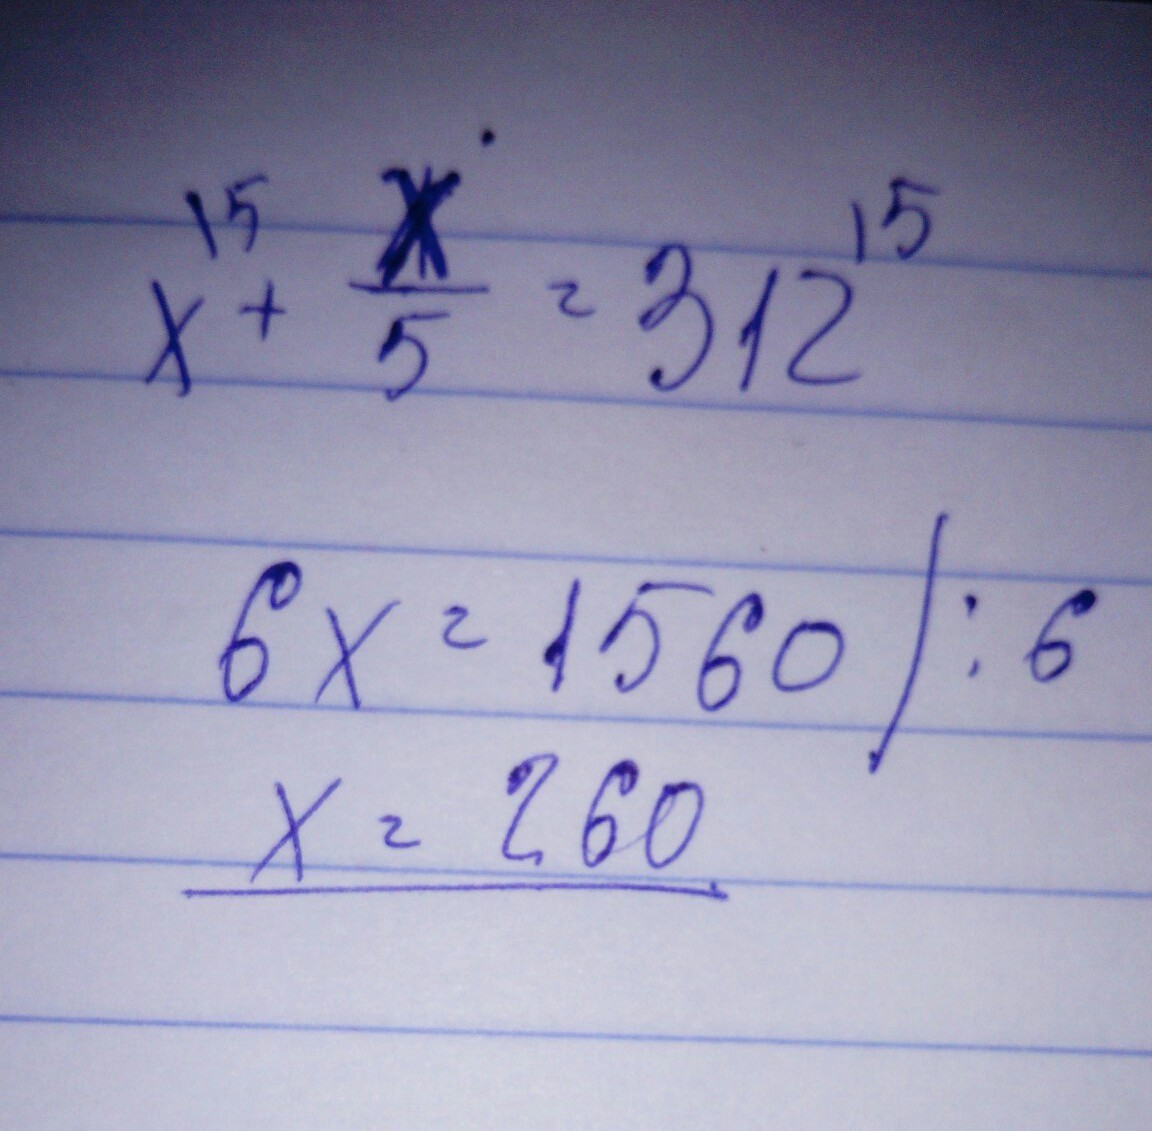 x^{\5} + \frac{x}{5} = 312^{\5}
6x = 1560 / : 6
x = 260